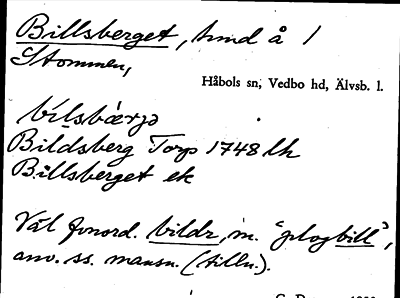 Billsberget, hmd å 1
Stommen,
Håbols sn, Vedbo hd, Älvsb. l.
Bildsberg Torp 1748 lh
Billsberget ek
Väl fvnord. bildr, m. "plogbill",
anv. ss. mansn. (tilln.).